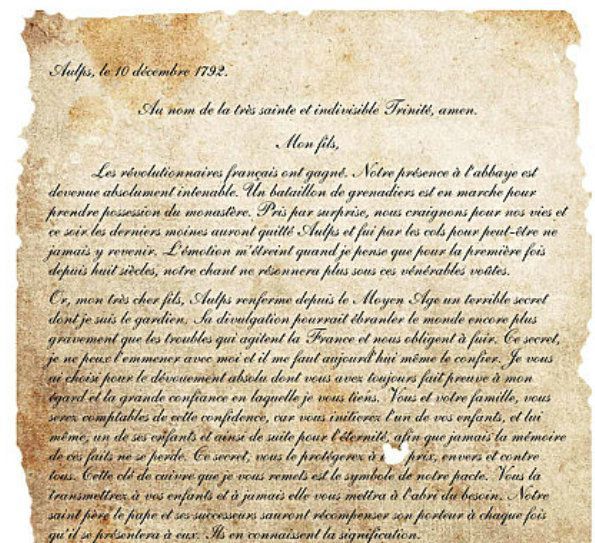 Aulps, le 10 décembre 1792.
Au nom de la très sainte et indivisible Trinité, amen.
Mon fils,
Les révolutionnaires français ont gagné. Notre présence à l'abbaye est
devenue absolument intenable. Un bataillon de grenadiers est en marche pour
prendre possession du monastère. Pris par surprise, nous craignons pour nos vies et
ce soir les derniers moines auront quitté Aulps et fui par les cols pour peut-être ne
jamais y revenir. L'émotion m'étreint quand je pense que pour la première fois
depuis huit siècles, notre chant ne résonnera plus sous ces vénérables voûtes.
Or, mon très cher fils, Aulps renferme depuis le Moyen Age un terrible secret
dont je suis le gardien. Sa divulgation pourrait ébranler le monde encore plus
gravement que les troubles qui agitent la France et nous obligent à fuir. Ce secret,
je ne peux l'emmener avec moi et il me faut aujourd'hui même le confier. Je vous
ai choisi pour le dévouement absolu dont vous avez toujours fait preuve à mon
égard et la grande confiance en laquelle je vous tiens. Vous et votre famille, vous
serez comptables de cette confidence, car vous initierez l'un de vos enfants, et lui
même, un de ses enfants et ainsi de suite pour l'éternité, afin que jamais la mémoire
de ces faits ne se perde. Ce secret, vous le protégerez à prix, envers et contre
tous. Cette clé de cuivre que je vous remets est le symbole de notre pacte. Vous la
transmettrez à vos enfants et à jamais elle vous mettra à l'abri du besoin. Notre
saint père le pape et ses successeurs sauront récompenser son porteur à chaque fois
qu'il se présentera à eux. Ils en connaissent la signification.